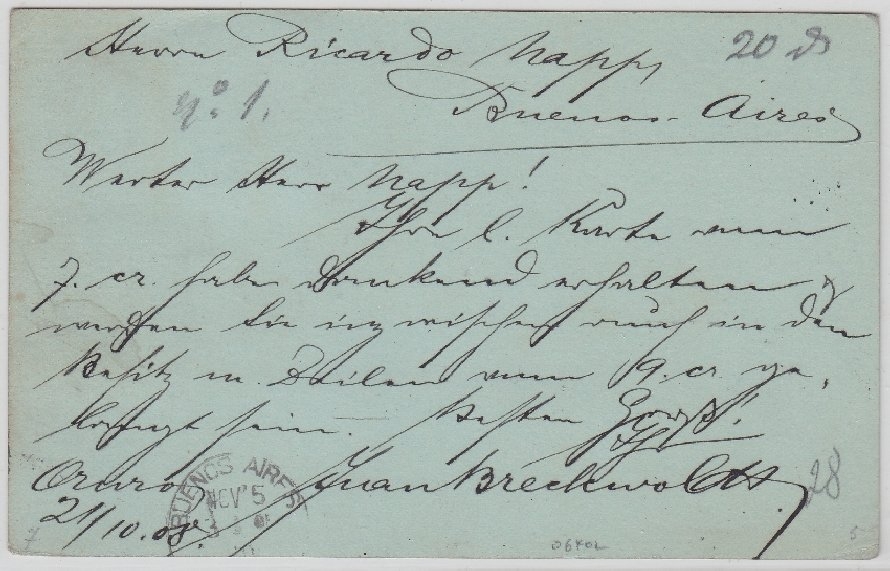 Herrn Ricardo Napp, 20 d
No. 1.
Buenos-Aires
Werter Herr Napp!
Ihre l. Karte vom
7. cr. habe dankend erhalten &
werden Sie inzwischen auch in den
Besitz m. Zeilen vom 9. cr. ge-
langt sein. Besten Gruss!
Ihr
Oruro Juan Breckwoldt
21/10.08.
BUENOS AIRES
NOV 5
28